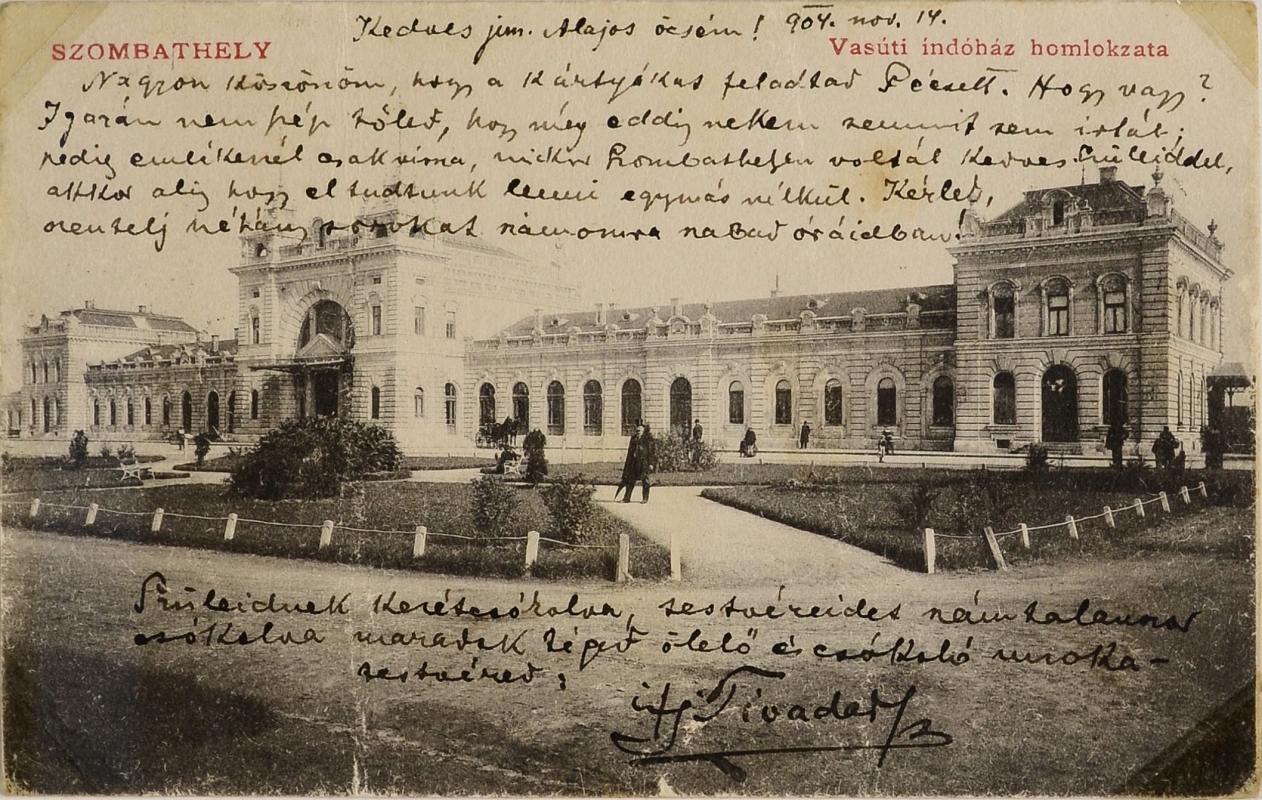 Kedves jun. Alajos öcsém! 904. nov. 14.
SZOMBATHELY
Vasúti indóház homlokzata
Nagyon köszönöm, hogy a kártyákat feladtad Pécsett. Hogy vagy?
Igazán nem szép tőled, hogy még eddig nekem semmit sem írtál;
pedig emlékezzél csak vissza, mikor Szombathelyen voltál kedves Szüleiddel,
akkor alig hogy el tudtunk lenni egymás nélkül. Kérlek,
szentelj néhány sorokat számomra szabad óráidban!
Szüleidnek kezét csókolva, testvéreidet számtalanszor
csókolva maradok téged ölelő és csókoló unoka-
testvéred:
ifj Tivadar